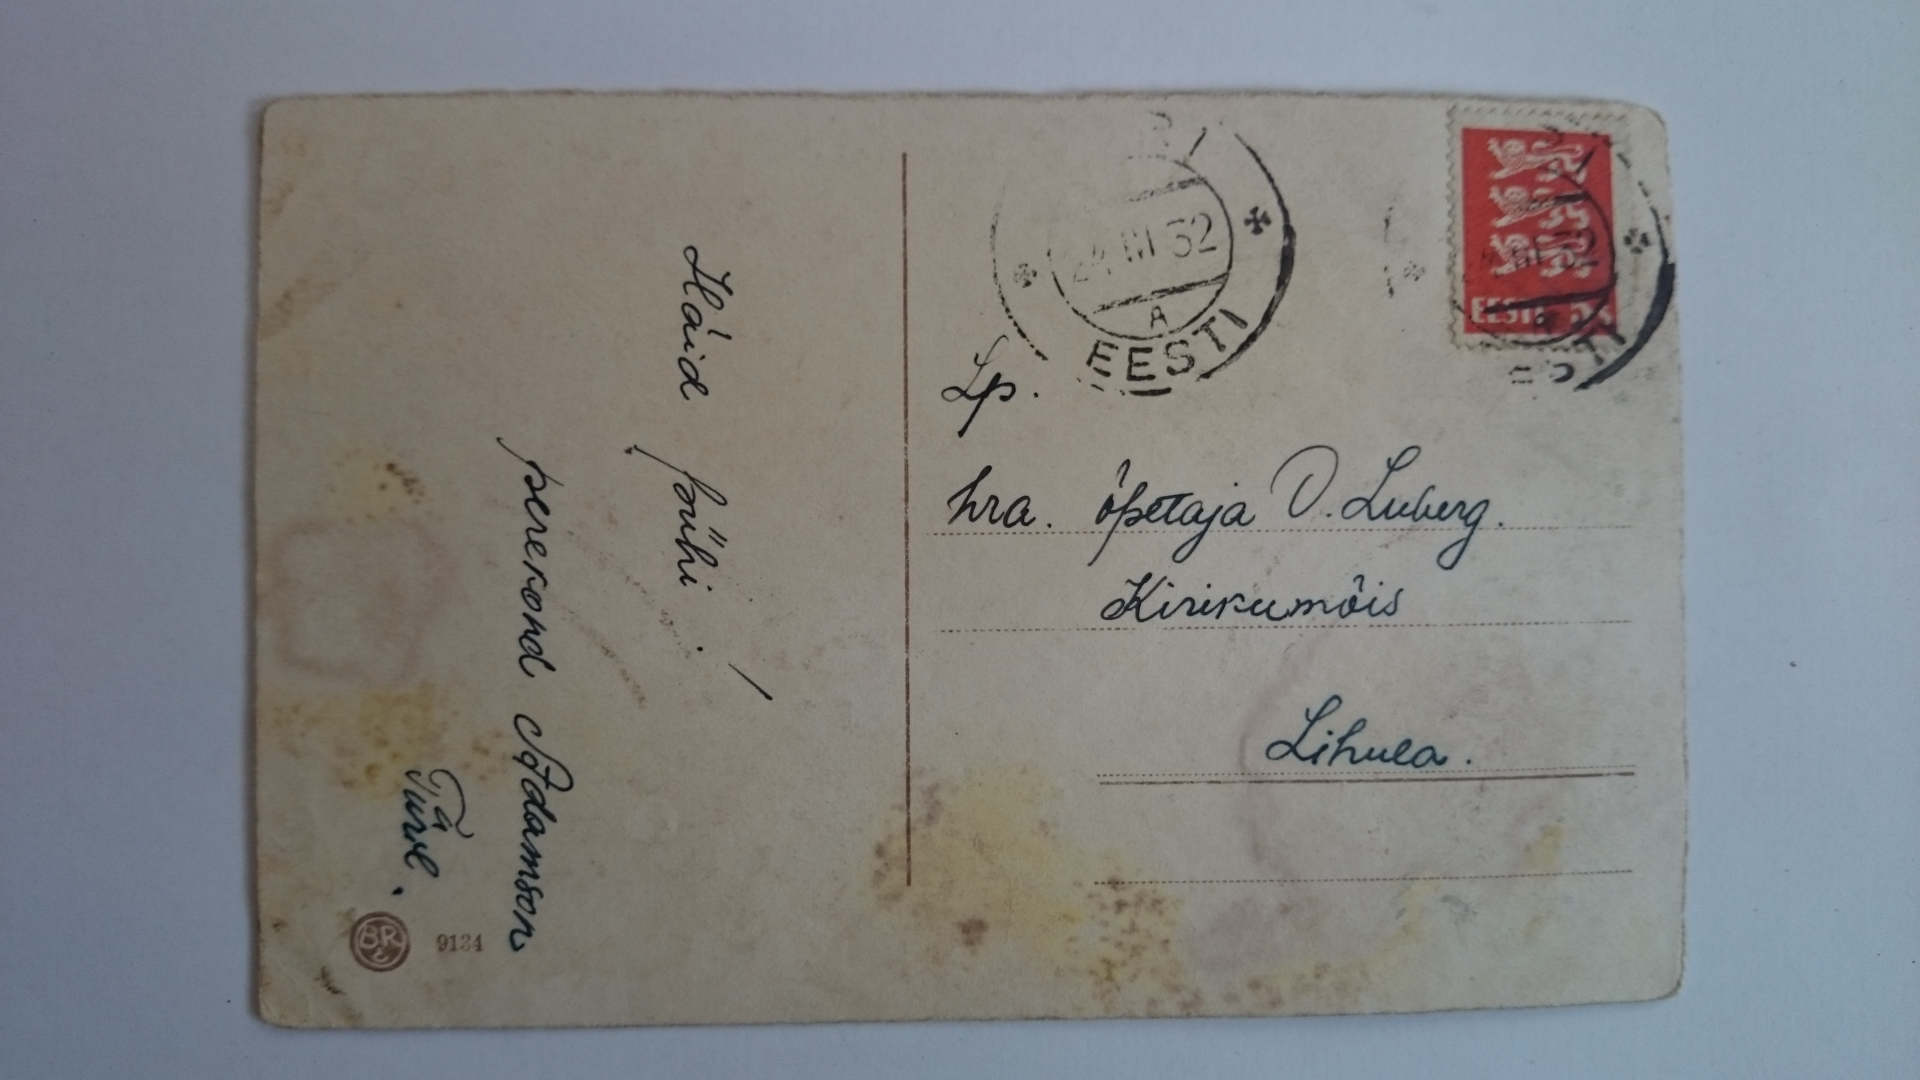 Häid
pühi.!
pererond Adamson
Türil.
BR
9134
24 III 32
A
EESTI
EESTI 5 S
Lp.
hra. õpetaja O. Luberg.
Kirikumõis
Lihula.